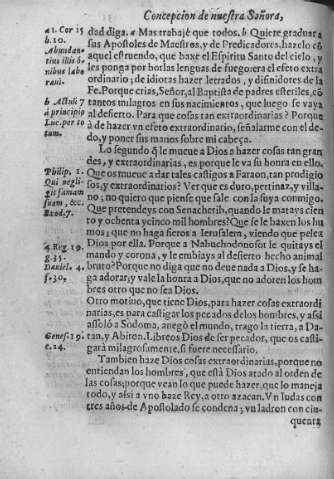 Concepcion de nuestra Señora,
a 1. Cor 15
b. 10.
Abundan-
tius illis o-
nibus labo
raui.
b Actū 7
a principio
Luc. per to
tum.
Philip. 1.
Qui negli-
git famam
suam, &c.
Exod. 7.
4. Reg. 19.
g. 35.
Daniel. 4.
f. 30.
Genes. 19.
e. 24.
dad diga. a Mas trabajè que todos. b Quiere graduar a
sus Apostoles de Maestros, y de Predicadores, hazelo cō
aquel estruendo, que baxe el Espiritu Santo del cielo, y
les ponga por borlas lenguas de fuego: era el efeto extra
ordinario; de idiotas hazer letrados, y difinidores de la
Fe. Porque crias, Señor, al Baptista de padres esteriles, cō
tantos milagros en sus nacimientos, que luego se vaya
al desierto. Para que cosas tan extraordinarias? Porquè
de hazer vn efeto extraordinario, señalarme con el de-
do, y poner sus manos sobre mi cabeça.
Lo segundo q̄ le mueue a Dios a hazer cosas tan gran
des, y extraordinarias, es porque le va su honra en ello.
Que os mueue a dar tales castigos a Faraon, tan prodigio
sos, y extraordinarios? Ver que es duro, pertinaz, y villa-
no; no quiero que piense que sale con la suya conmigo.
Que pretendeys con Senacherib, quando le matays cien
to y ochenta y cinco mil hombres? Que se le baxen los hu
mos; que no haga fieros a Ierusalem, viendo que pelea
Dios por ella. Porque a Nabuchodonosor le quitays el
mando y corona, y le embiays al desierto hecho animal
bruto? Porque no diga que no deue nada a Dios, y se ha-
ga adorar; y vale la honra a Dios, que no adoren los hom
bres otro que no sea Dios.
Otro motiuo, que tiene Dios, para hazer cosas extraordi
narias, es para castigar los pecados de los hombres, y assi
assolò a Sodoma, anegò el mundo, tragò la tierra, a Da-
tan, y Abiron. Libreos Dios de ser pecador, que os casti-
garà milagrosamente, si fuere necessario.
Tambien haze Dios cosas extraordinarias, porque no
entiendan los hombres, que està Dios atado al orden de
las cosas; porque vean lo que puede hazer, que lo maneja
todo, y assi a vno haze Rey, a otro azacan. Vn Iudas con
tres años de Apostolado se condena; vn ladron con cin-
quenta